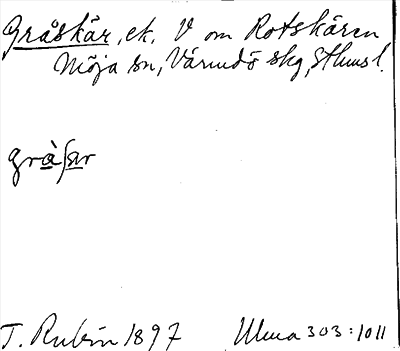 Gråskär, ek. V om Rotskären
Möja sn, Värmdö skg, Sthms l.
gràʃær
T. Rubin 1897 Ulma 303:1011